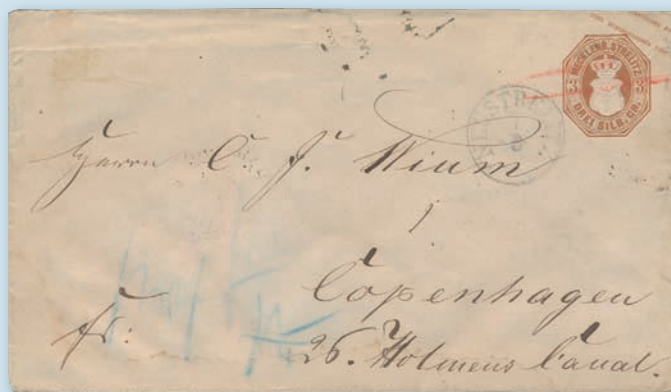 MECKLENB. STRELITZ.
DREI SILB. GR.
Herrn C. J. Wium
Copenhagen
fr:
26. Holmens Canal.